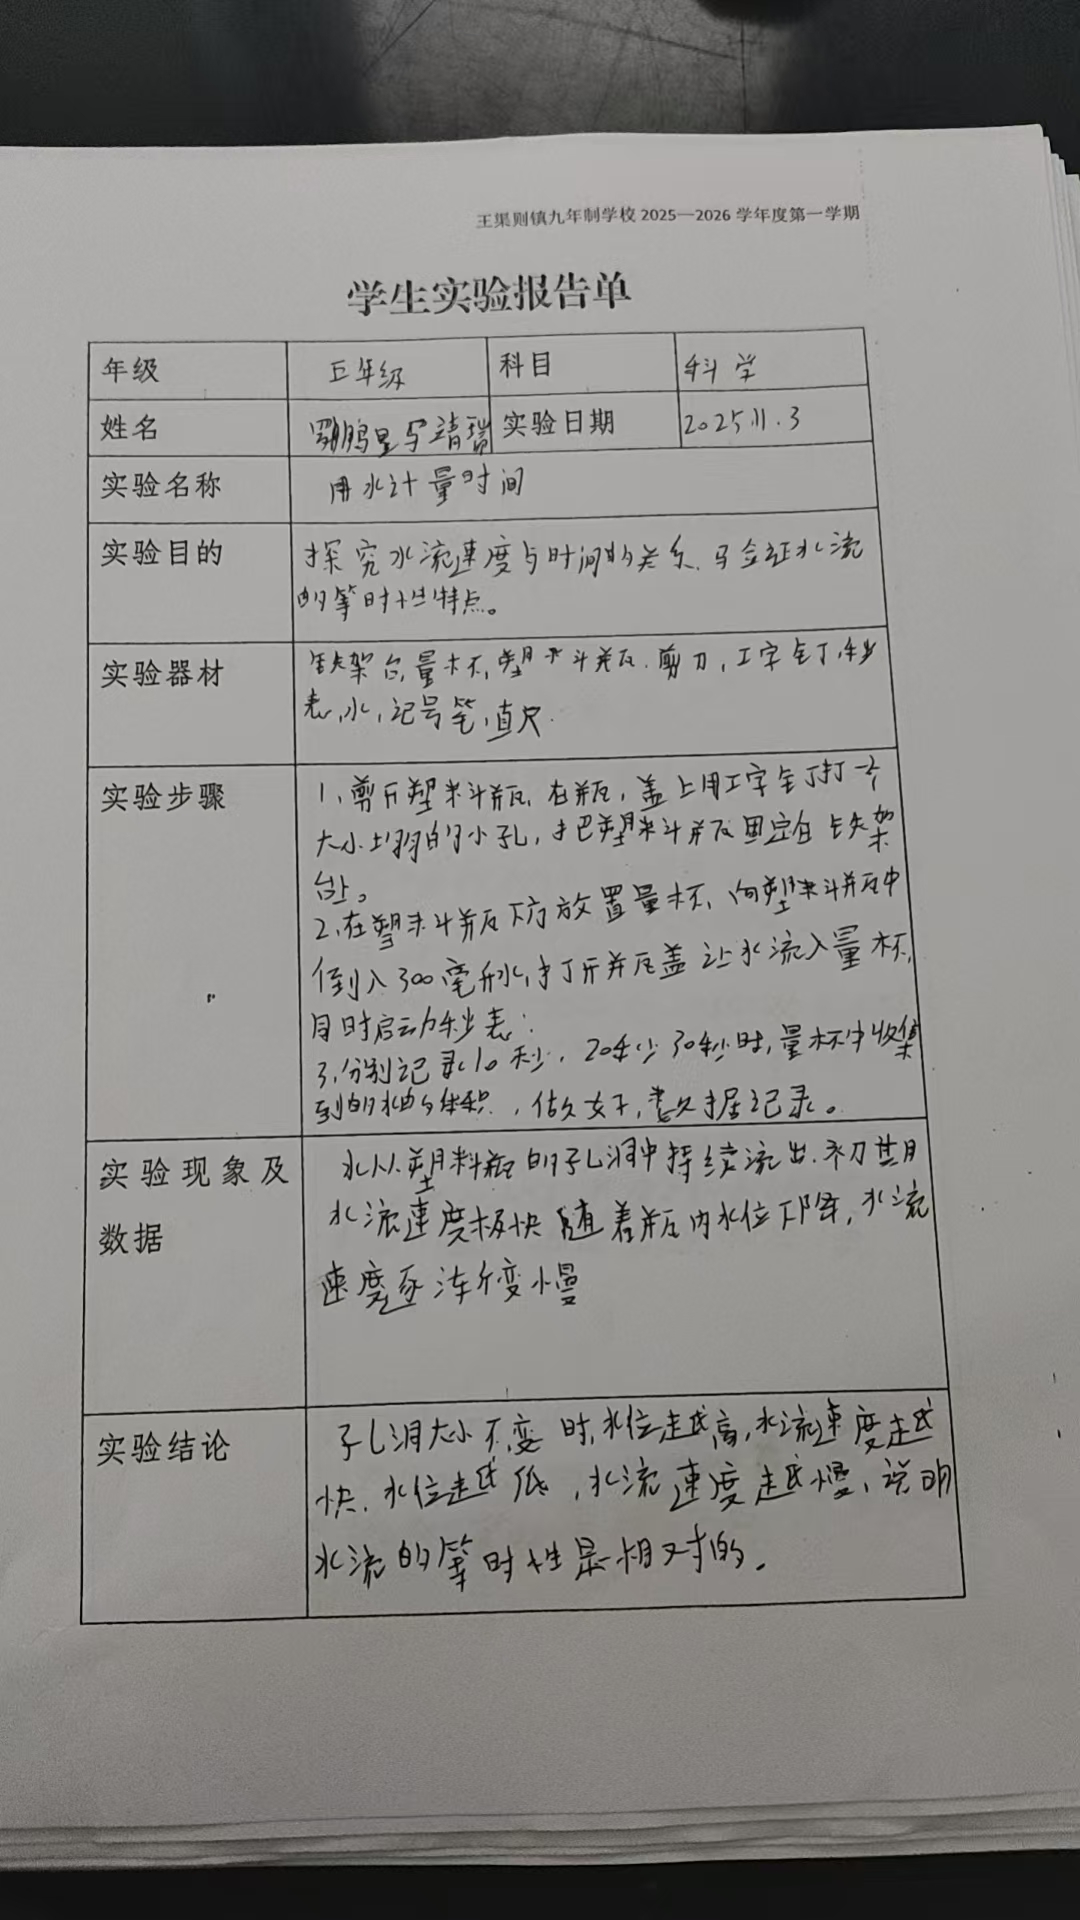 王渠则镇九年制学校 2025—2026 学年度第一学期
学生实验报告单
年级 五年级 科目 科学
姓名 鹏 靖瑞 实验日期 2025.11.3
实验名称 用水计量时间
实验目的 探究水流速度与时间的关系、马金证水流
的等时性特点。
实验器材 铁架台,量杯,塑料瓶、剪刀,工字钉,秒
表,水,记号笔,直尺.
实验步骤 1、剪开塑料瓶,在瓶,盖上用工字钉打一个
大小均匀的小孔,把塑料瓶固定在铁架
台上。
2、在塑料瓶下方放置量杯、向塑料瓶中
倒入300毫升水,打开瓶盖让水流入量杯,
同时启动秒表:
3、分别记录10秒、20秒30秒时,量杯中收集
到的水的体积,做好,数据记录。
实验现象及 水从塑料瓶的孔洞中持续流出.初期
数据 水流速度极快随着瓶内水位下降,水流
速度逐渐变慢
实验结论 孔洞大小不变时,水位越高,水流速度越
快.水位越低,水流速度越慢、说明
水流的等时性是相对的.